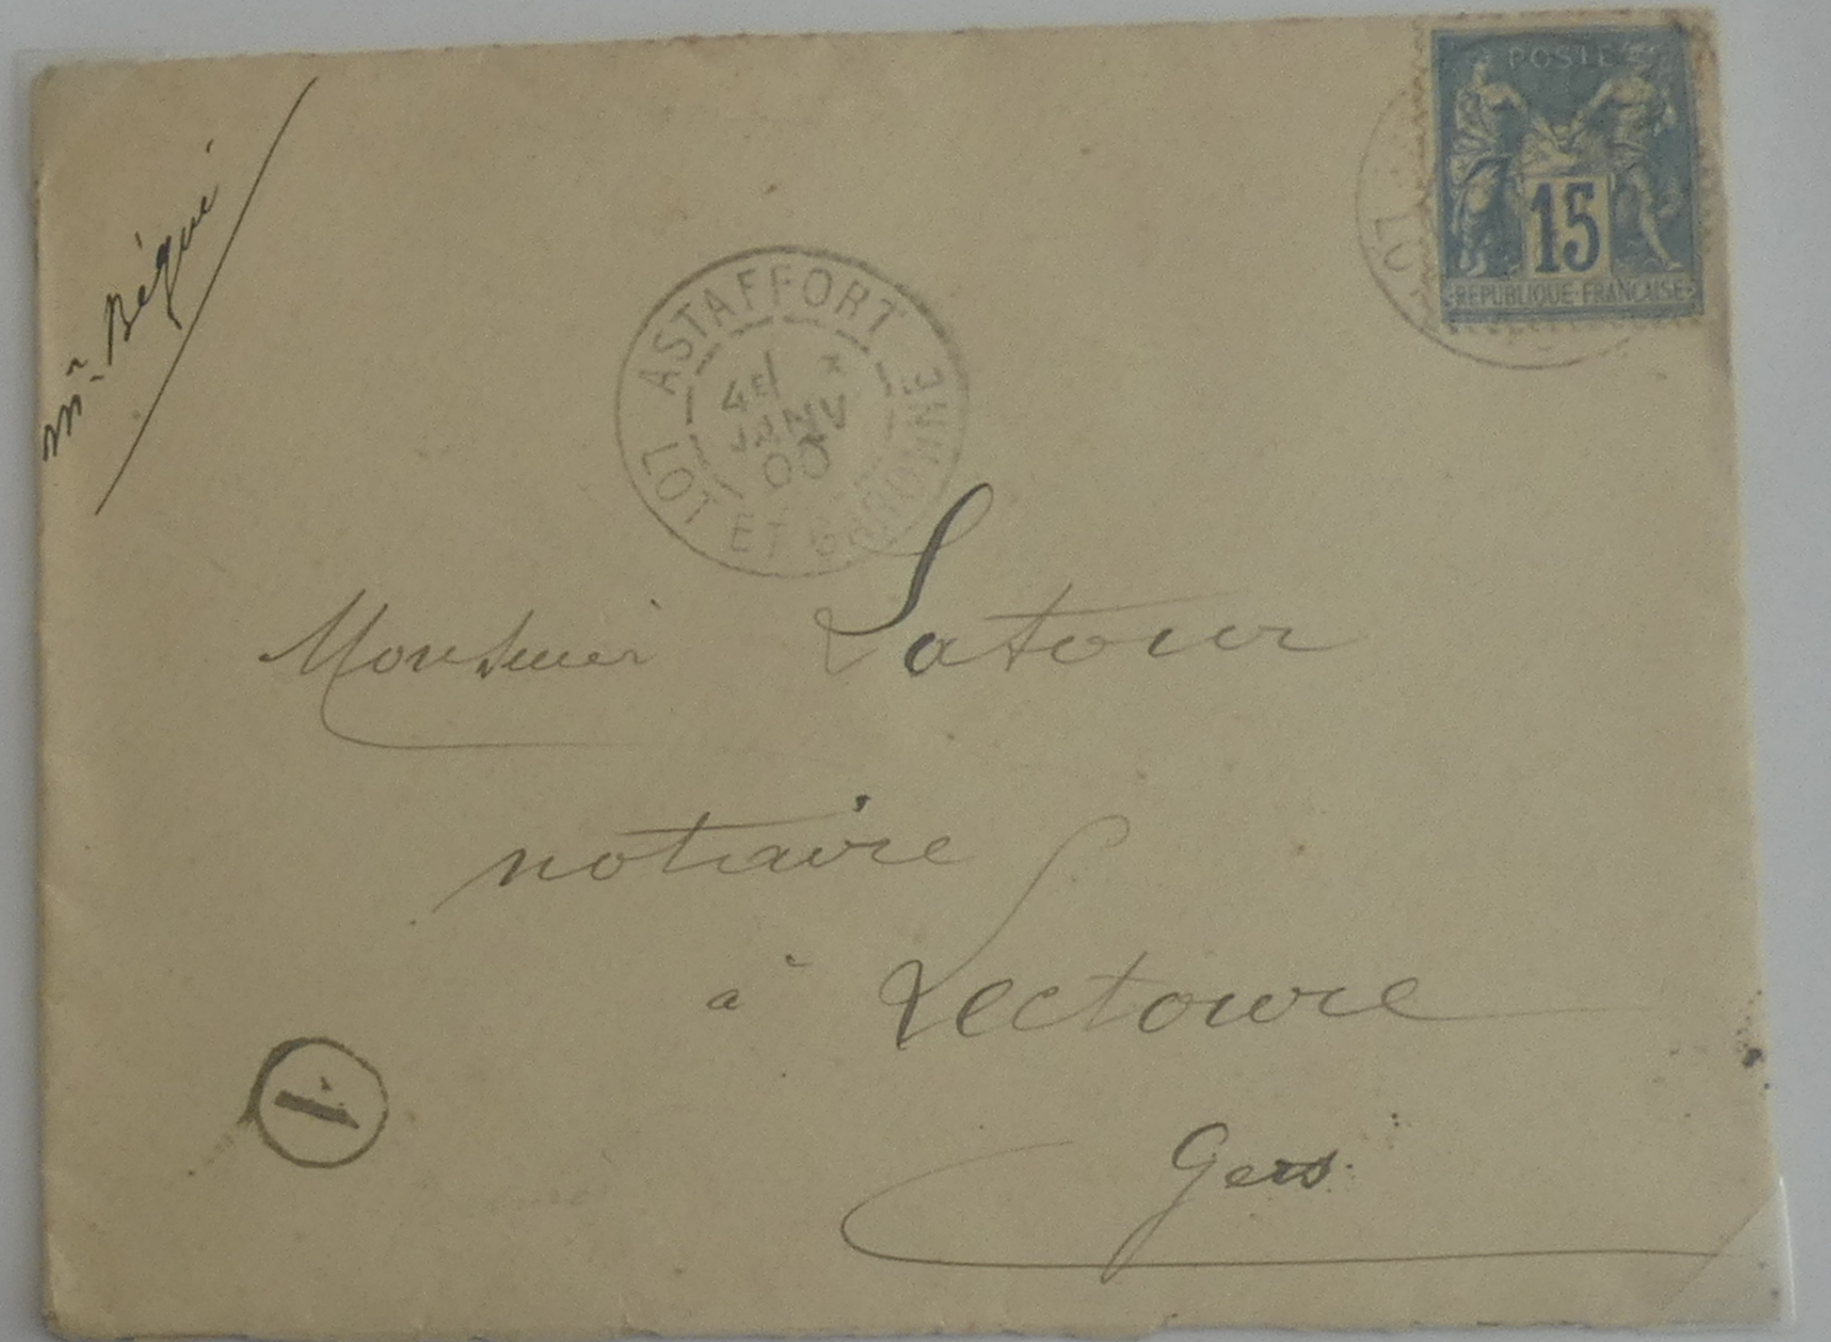 Mr. Bégué
POSTE
15
REPUBLIQUE FRANCAISE
LOT
ASTAFFORT
4E *
JANV
00
LOT ET GARONNE
Monsieur Latour
notaire
à Lectoure
Gers
1